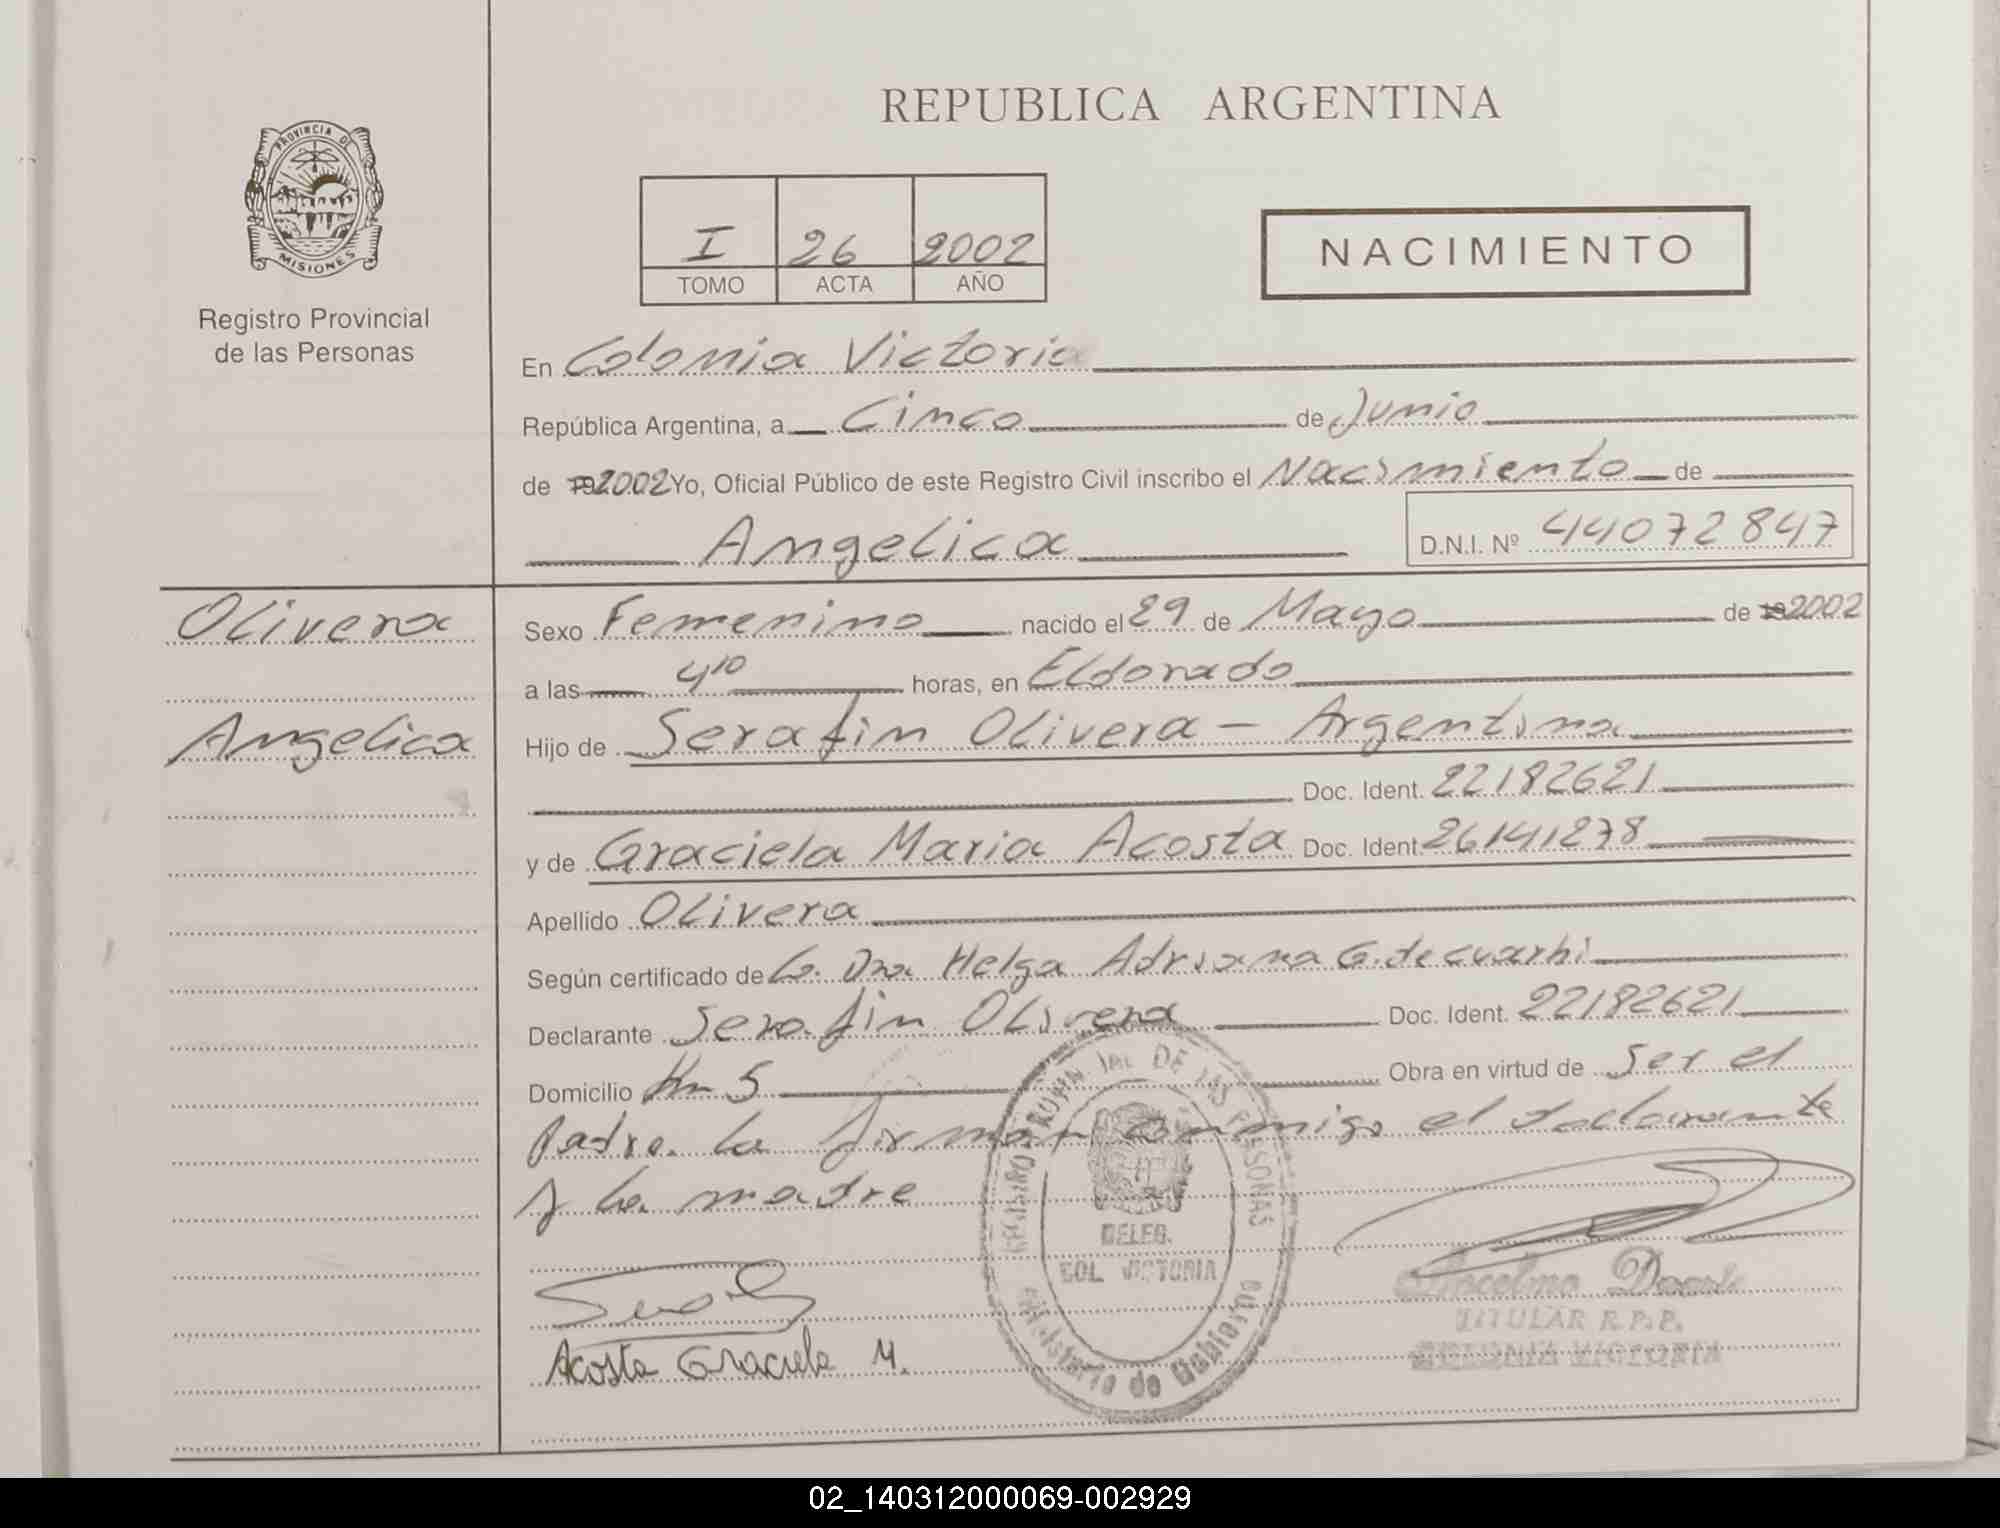 PROVINCIA DE
MISIONES
Registro Provincial
de las Personas
REPUBLICA ARGENTINA
I 26 2002
TOMO ACTA AÑO
NACIMIENTO
En Colonia Victoria
República Argentina, a Cinco de Junio
de 192002 Yo, Oficial Público de este Registro Civil inscribo el Nacimiento de
Angelica D.N.I. Nº 44072847
Olivera
Angelica
Sexo Femenino nacido el 29 de Mayo de 192002
a las 4¹⁰ horas, en Eldorado
Hijo de Serafin Olivera - Argentina
Doc. Ident. 22182621
y de Graciela Maria Acosta Doc. Ident. 26141278
Apellido Olivera
Según certificado de La Dra Helga Adriana G. de Cuarhi
Declarante Serafin Olivera Doc. Ident. 22182621
Domicilio Km 5 Obra en virtud de ser el
Padre. La firman conmigo el declarante
y la madre
REGISTRO PROVINCIAL DE LAS PERSONAS
DELEG.
COL. VICTORIA
Ministerio de Gobierno
Acosta Graciela M.
TITULAR R.P.P.
COLONIA VICTORIA
02_140312000069-002929